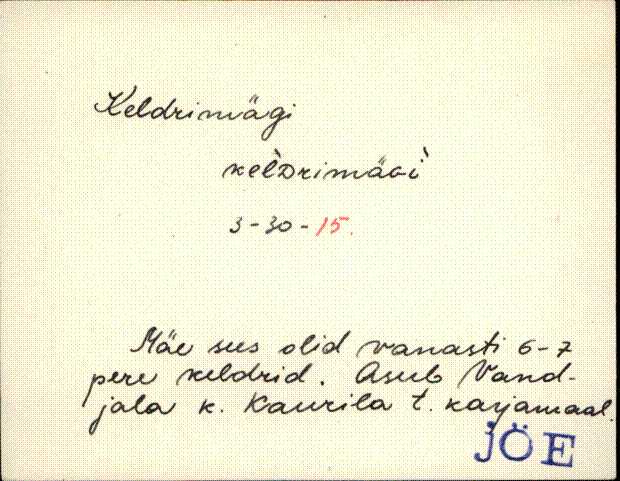 Keldrimägi
kel̀ᴅrimäɢì
3-30-15.
Mäe sees olid vanasti 6-7
pere keldrid. Asub Vand-
jala k. Kaurila t. karjamaal.
JÕE